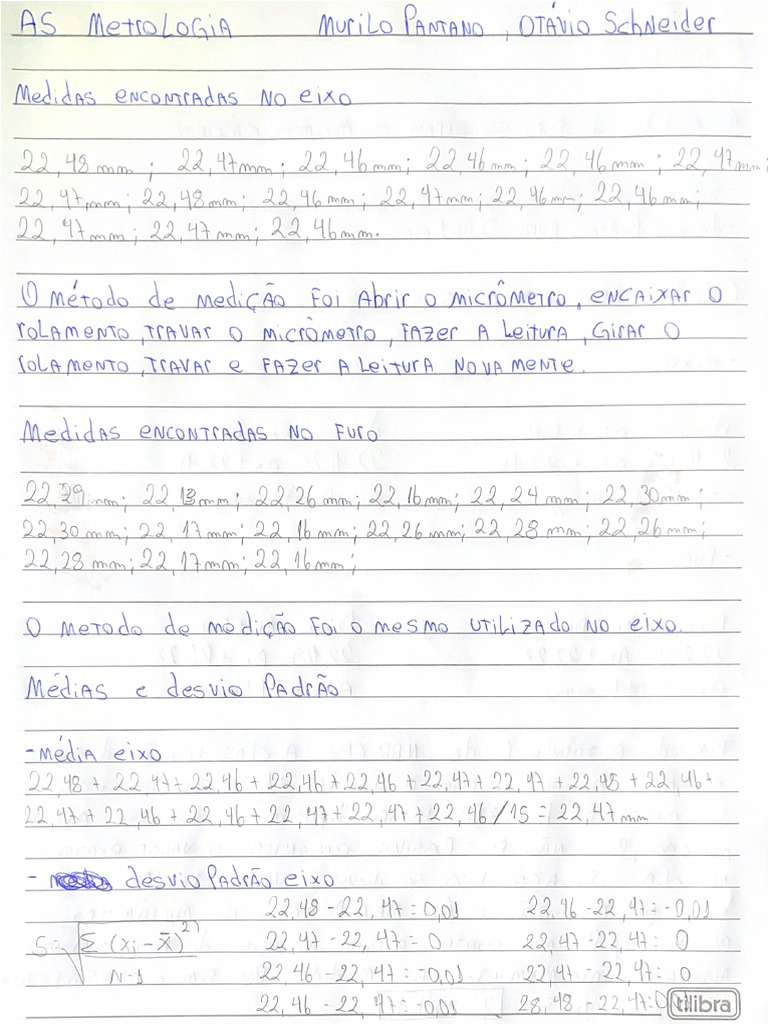 AS Metrologia Murilo Pantano, Otávio Schneider
Medidas encontradas no eixo
22,48 mm ; 22,47mm ; 22,46 mm; 22,46 mm; 22,46 mm ; 22,47 mm;
22,47,mm; 22,48mm; 22,46 mm; 22,47mm; 22,46mm; 22,46mm;
22,47mm; 22,47mm; 22,46mm.
O método de medição foi abrir o micrômetro, encaixar o
rolamento, travar o micrômetro, fazer a leitura, girar o
rolamento, travar e fazer a leitura novamente.
Medidas encontradas no furo
22,29 mm; 22,13mm; 22,26 mm; 22,16mm; 22,24 mm; 22,30mm;
22,30 mm; 22,17mm; 22,16mm; 22,26mm; 22,28 mm; 22,26mm;
22,28 mm; 22,17mm; 22,16mm;
O metodo de medição foi o mesmo utilizado no eixo.
Médias e desvio padrão
- média eixo
22,48 + 22,47 + 22,46 + 22,46 + 22,46 + 22,47 + 22,47 + 22,48 + 22,46 +
22,47 + 22,46 + 22,46 + 22,47 + 22,47 + 22,46 / 15 = 22,47 mm
- desvio padrão eixo
22,48 - 22,47 = 0,01 22,46 - 22,47 = -0,01
S = √ Σ (xi - x̄)² 22,47 - 22,47 = 0 22,47 - 22,47 = 0
N-1 22,46 - 22,47 = -0,01 22,47 - 22,47 = 0
22,46 - 22,47 = -0,01 28,48 - 22,47 = 0
tilibra